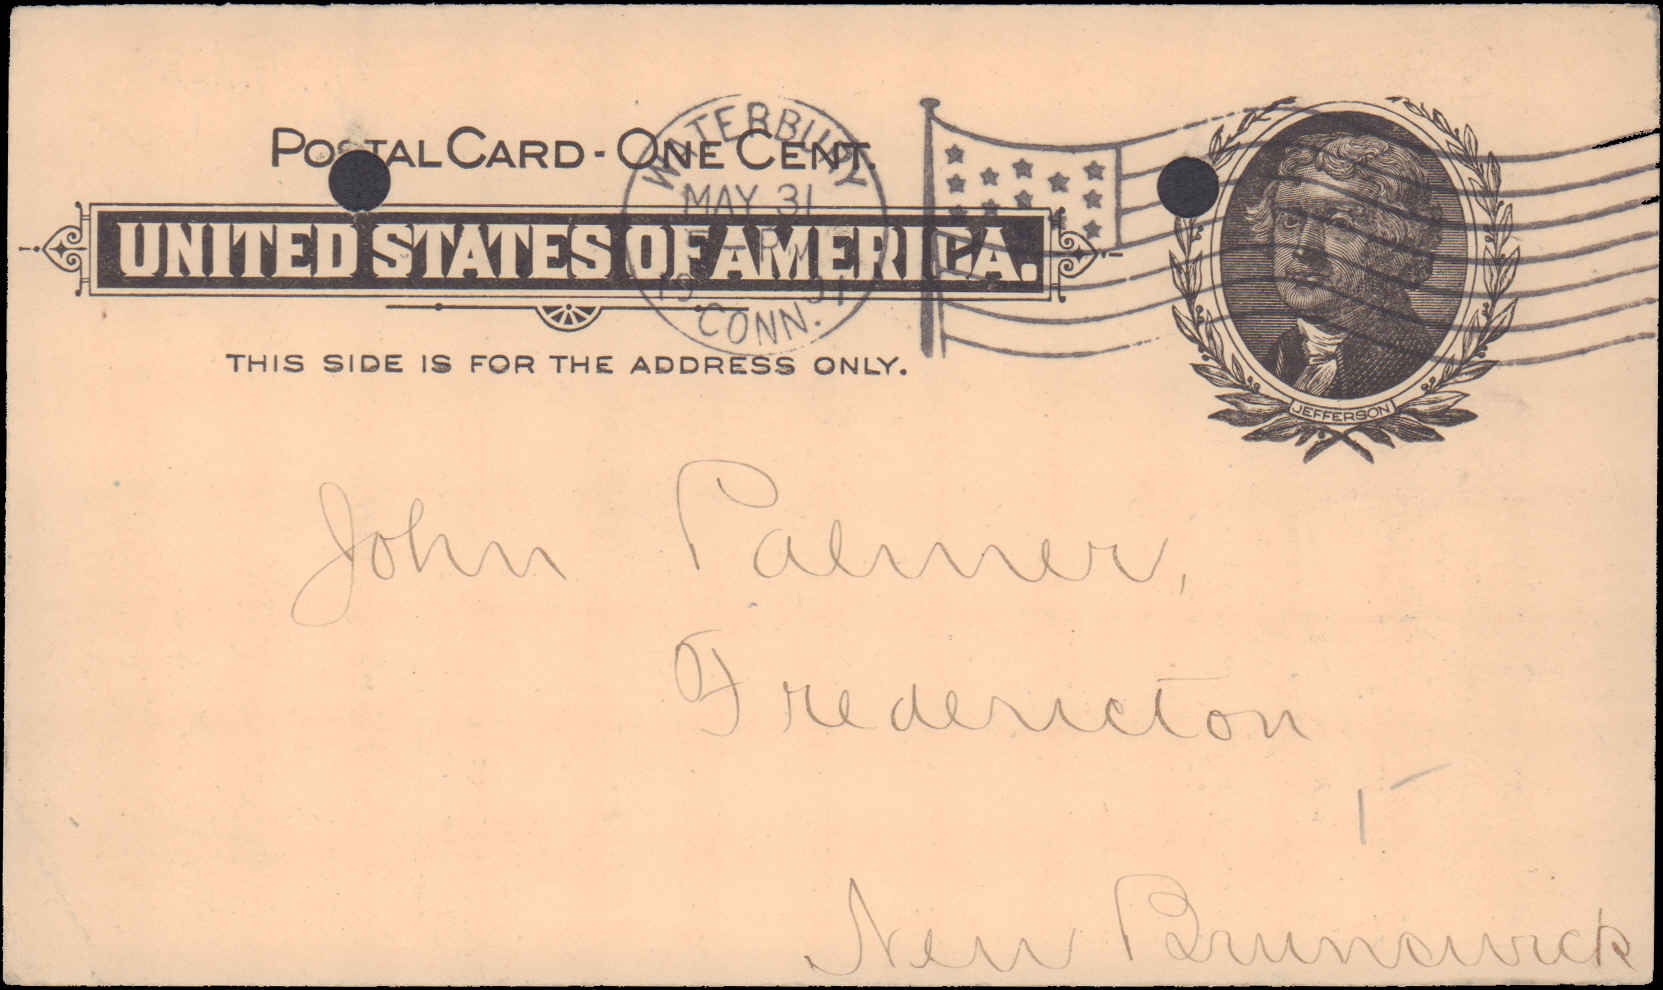 POSTAL CARD - ONE CENT.
UNITED STATES OF AMERICA.
THIS SIDE IS FOR THE ADDRESS ONLY.
WATERBURY
MAY 31
CONN.
JEFFERSON
John Palmer,
Fredericton
New Brunswick